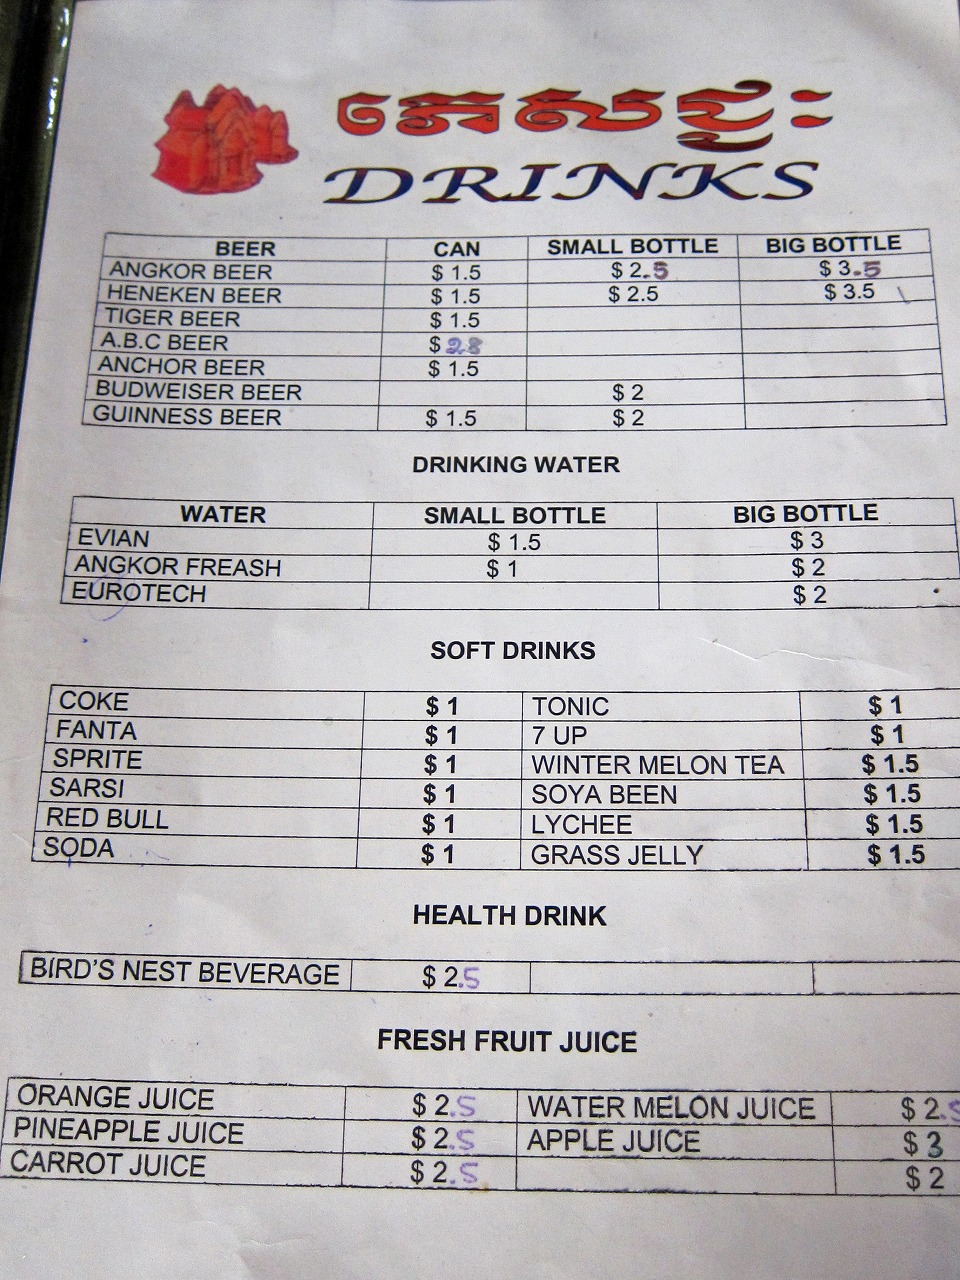 ភេសជ្ជៈ
DRINKS
BEER CAN SMALL BOTTLE BIG BOTTLE
ANGKOR BEER $ 1.5 $ 2.5 $ 3.5
HENEKEN BEER $ 1.5 $ 2.5 $ 3.5
TIGER BEER $ 1.5
A.B.C BEER $ 28
ANCHOR BEER $ 1.5
BUDWEISER BEER $ 2
GUINNESS BEER $ 1.5 $ 2
DRINKING WATER
WATER SMALL BOTTLE BIG BOTTLE
EVIAN $ 1.5 $ 3
ANGKOR FREASH $ 1 $ 2
EUROTECH $ 2
SOFT DRINKS
COKE $ 1 TONIC $ 1
FANTA $ 1 7 UP $ 1
SPRITE $ 1 WINTER MELON TEA $ 1.5
SARSI $ 1 SOYA BEEN $ 1.5
RED BULL $ 1 LYCHEE $ 1.5
SODA $ 1 GRASS JELLY $ 1.5
HEALTH DRINK
BIRD'S NEST BEVERAGE $ 2.5
FRESH FRUIT JUICE
ORANGE JUICE $ 2.5 WATER MELON JUICE $ 2.5
PINEAPPLE JUICE $ 2.5 APPLE JUICE $ 3
CARROT JUICE $ 2.5 $ 2